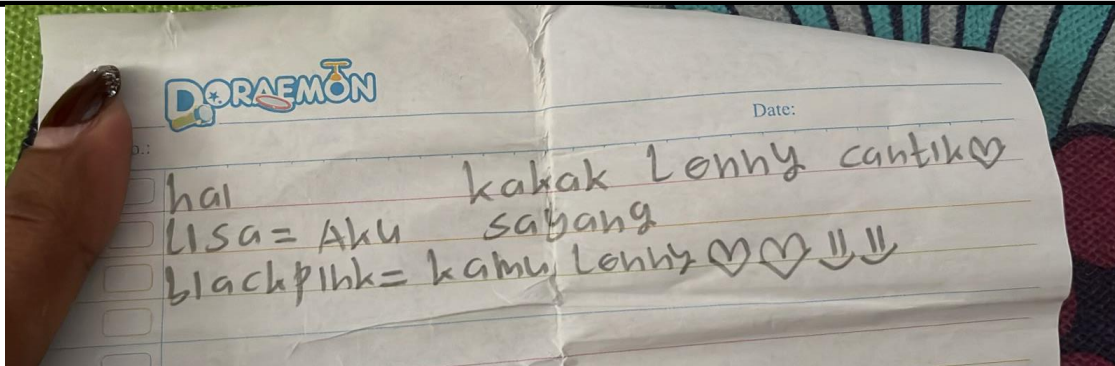 DORAEMON
Date:
o.:
hai kakak Lenny cantik♡
Lisa= Aku sayang
blackpink= kamu Lenny♡♡